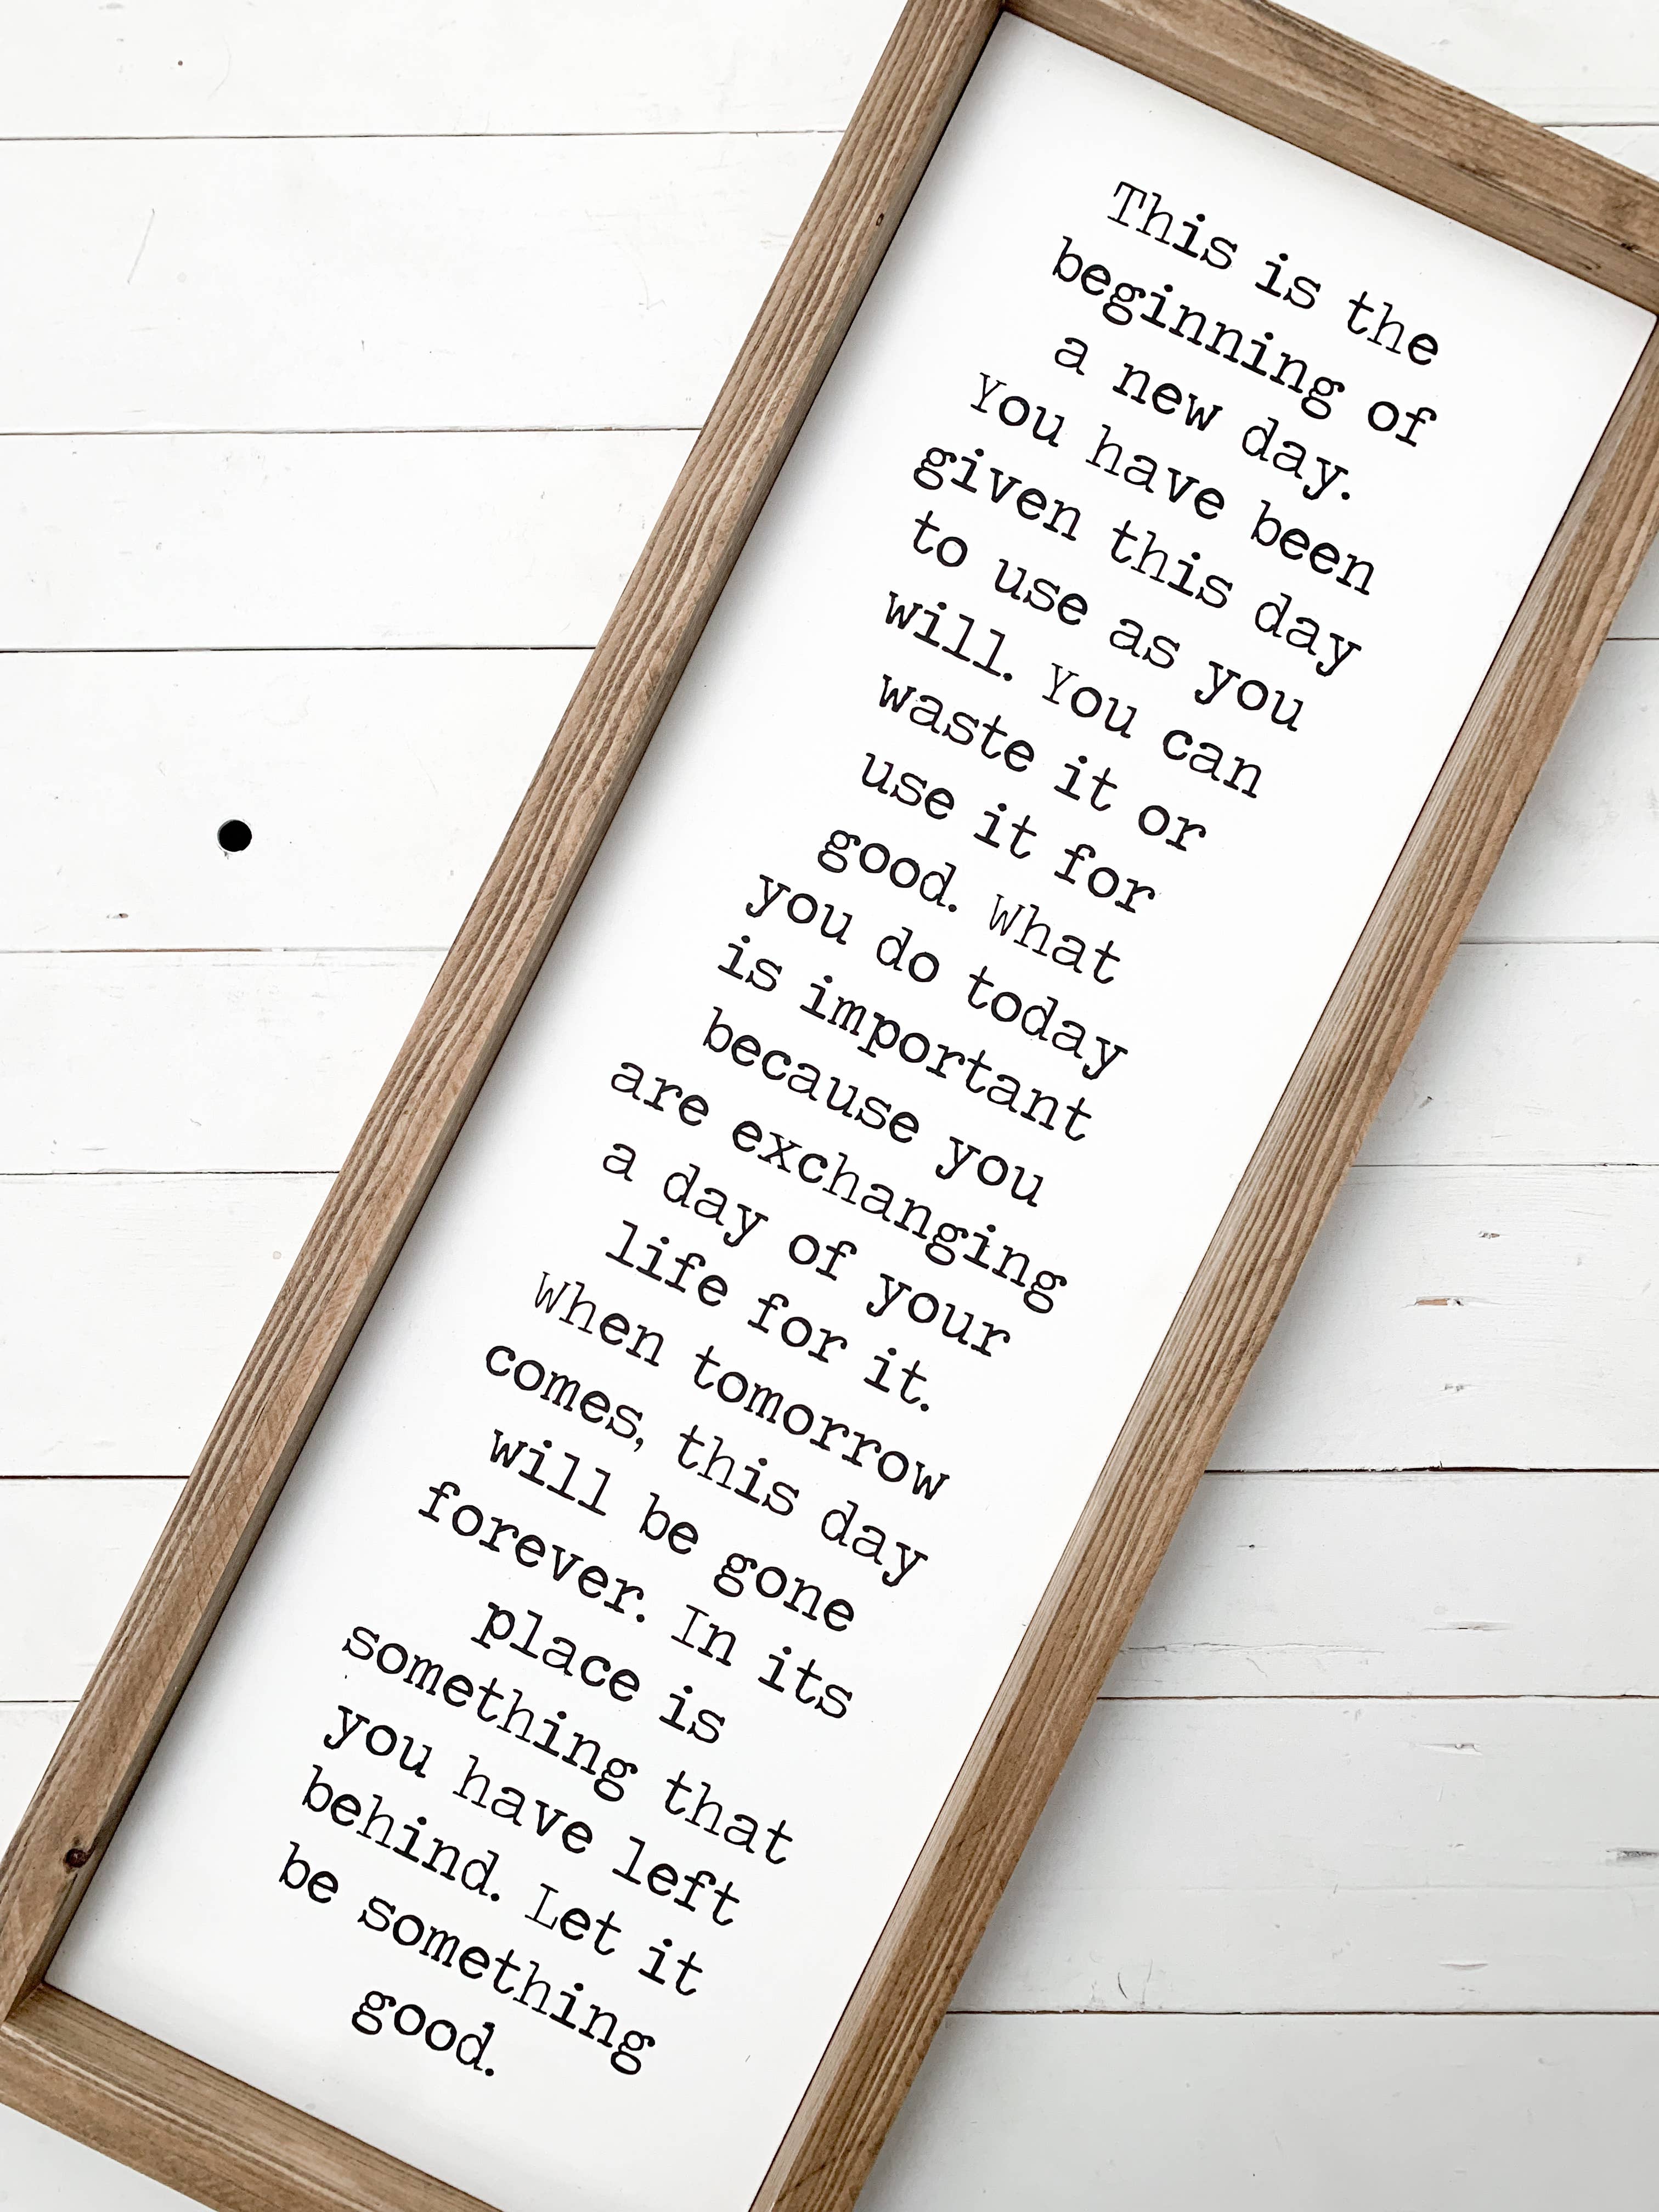 This is the
beginning of
a new day.
You have been
given this day
to use as you
will. You can
waste it or
use it for
good. What
you do today
is important
because you
are exchanging
a day of your
life for it.
When tomorrow
comes, this day
will be gone
forever. In its
place is
something that
you have left
behind. Let it
be something
good.